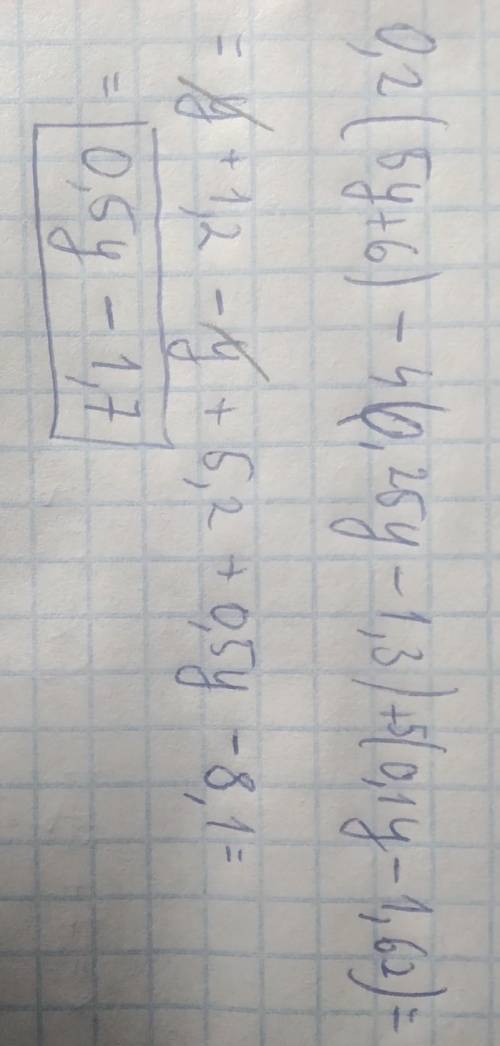 0,2(5y+6) - 4(0,25y - 1,3) + 5(0,1y - 1,62) =
= y + 1,2 - y + 5,2 + 0,5y - 8,1 =
= 0,5y - 1,7